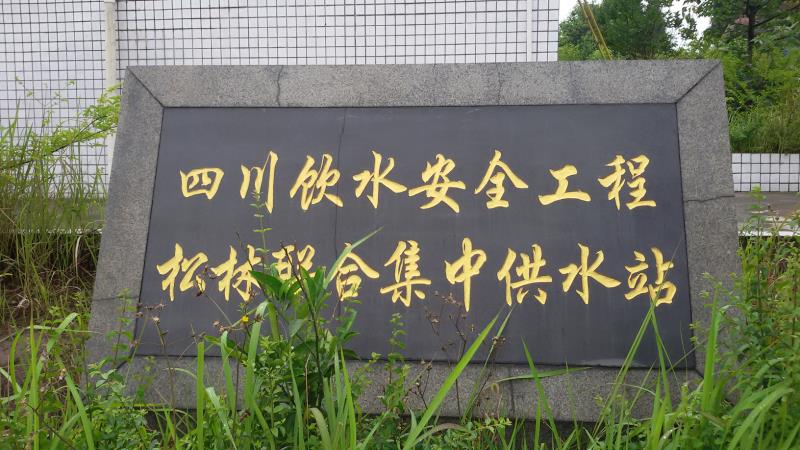 四川饮水安全工程
松林联合集中供水站